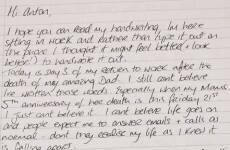 Hi Anton,
I hope you can read my handwriting. Im here
sitting in work and rather than type it out on
the phone I thought it might feel better (+ look
better!) to handwrite it out.
Today is day 3 of my return to work after the
death of my amazing Dad. I still cant believe
Ive written those words. Especially when my Mams
5th anniversary of her death is this friday 21st
I just cant believe it. I cant believe life goes on
and people expect me to answer emails + calls as
normal - dont they realise my life as I knew it
is falling apart.